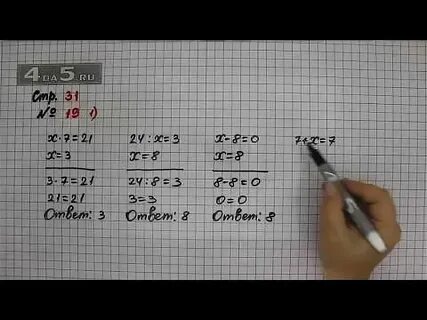 4DA5.RU
Стр. 31
№ 19 1)
x·7=21
x=3
3·7=21
21=21
Ответ: 3
24:x=3
x=8
24:8=3
3=3
Ответ: 8
x-8=0
x=8
8-8=0
0=0
Ответ: 8
7+x=7